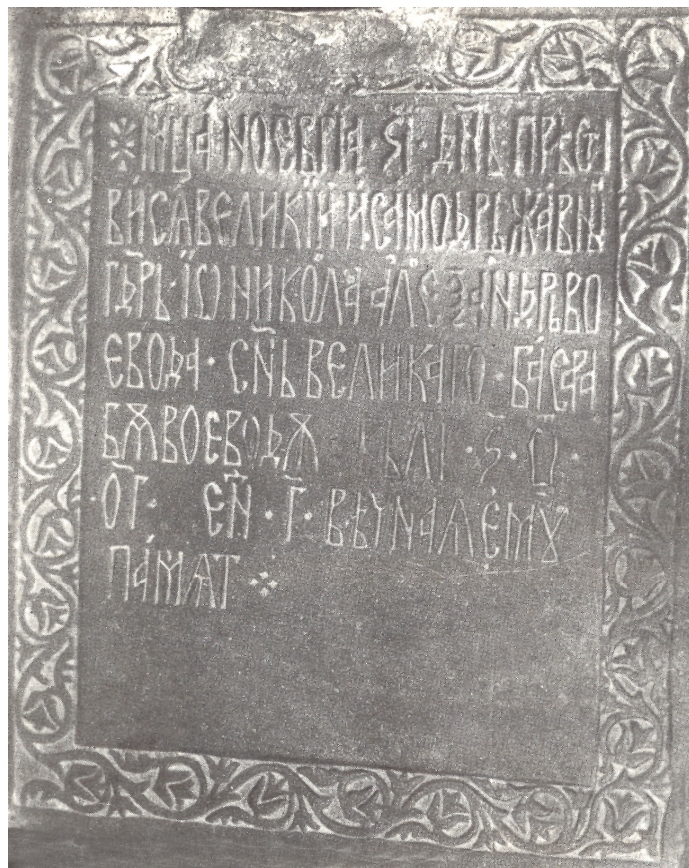 мца́ ноеврїа · ѕ҃і · дн҃ь прѣста
виса великїи и самодрьжавни
гдⷭ҇рь · їѡ никола алеѯандрь во
евода · сн҃ь великаго · басара
бѫ воеводѫ в лт · ѕ҃ · ѡ҃ ·
о҃г · ен҃ · г҃ · вѣчнаа емꙋ
памѧт